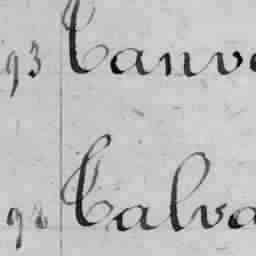 93 Canve
98 Calva